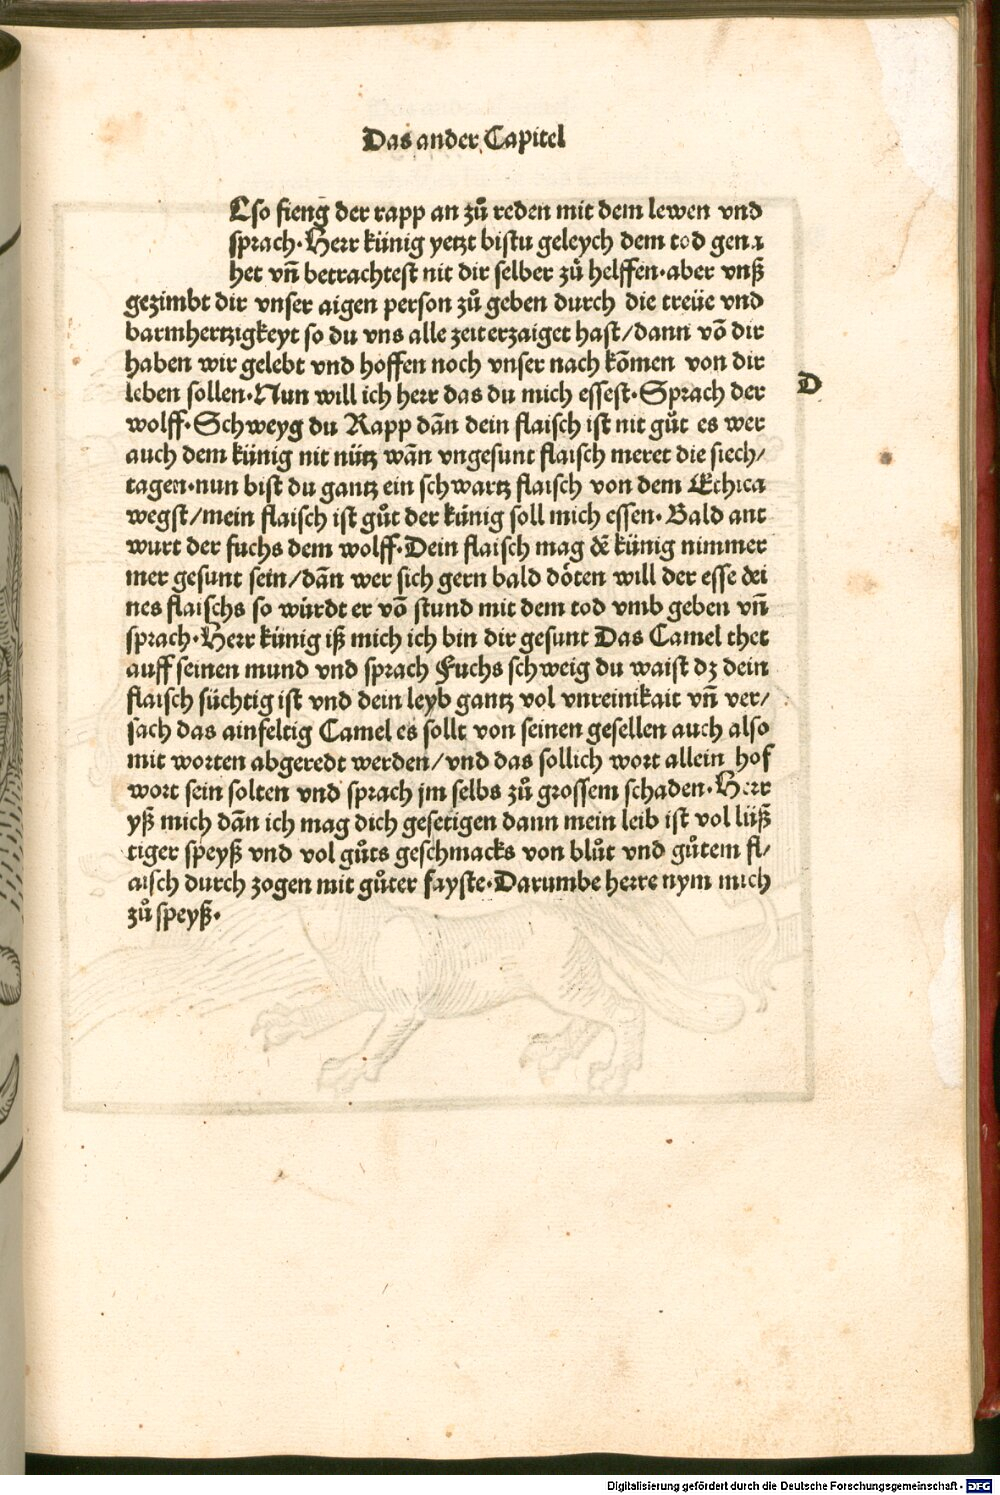 Das ander Capitel
Lso fieng der rapp an zů reden mit dem lewen vnd
sprach. Herr künig yetzt bistu geleych dem tod gena
het vn̄ betrachtest nit dir selber zů helffen. aber vnß
gezimbt dir vnser aigen person zů geben durch die treüe vnd
barmhertzigkeyt so du vns alle zeit erzaiget hast/dann vō dir
haben wir gelebt vnd hoffen noch vnser nach kōmen von dir
leben sollen. Nun will ich herr das du mich essest. Sprach der
D
wolff. Schweyg du Rapp dān dein flaisch ist nit gůt es wer
auch dem künig nit nütz wān vngesunt flaisch meret die siech/
tagen. nun bist du gantz ein schwartz flaisch von dem Ethica
wegst/mein flaisch ist gůt der künig soll mich essen. Bald ant
wurt der fuchs dem wolff. Dein flaisch mag dē künig nimmer
mer gesunt sein/dān wer sich gern bald döten will der esse dei
nes flaischs so würdt er vō stund mit dem tod vmb geben vn̄
sprach. Herr künig iß mich ich bin dir gesunt Das Camel thet
auff seinen mund vnd sprach Fuchs schweig du waist dz dein
flaisch süchtig ist vnd dein leyb gantz vol vnreinikait vn̄ ver/
sach das ainfeltig Camel es sollt von seinen gesellen auch also
mit worten abgeredt werden/vnd das sollich wort allein hof
wort sein solten vnd sprach jm selbs zů grossem schaden. Herr
yß mich dān ich mag dich gesetigen dann mein leib ist vol lüß
tiger speyß vnd vol gůts geschmacks von blůt vnd gůtem fl/
aisch durch zogen mit gůter fayste. Darumbe herre nym mich
zů speyß.
Digitalisierung gefördert durch die Deutsche Forschungsgemeinschaft - DFG